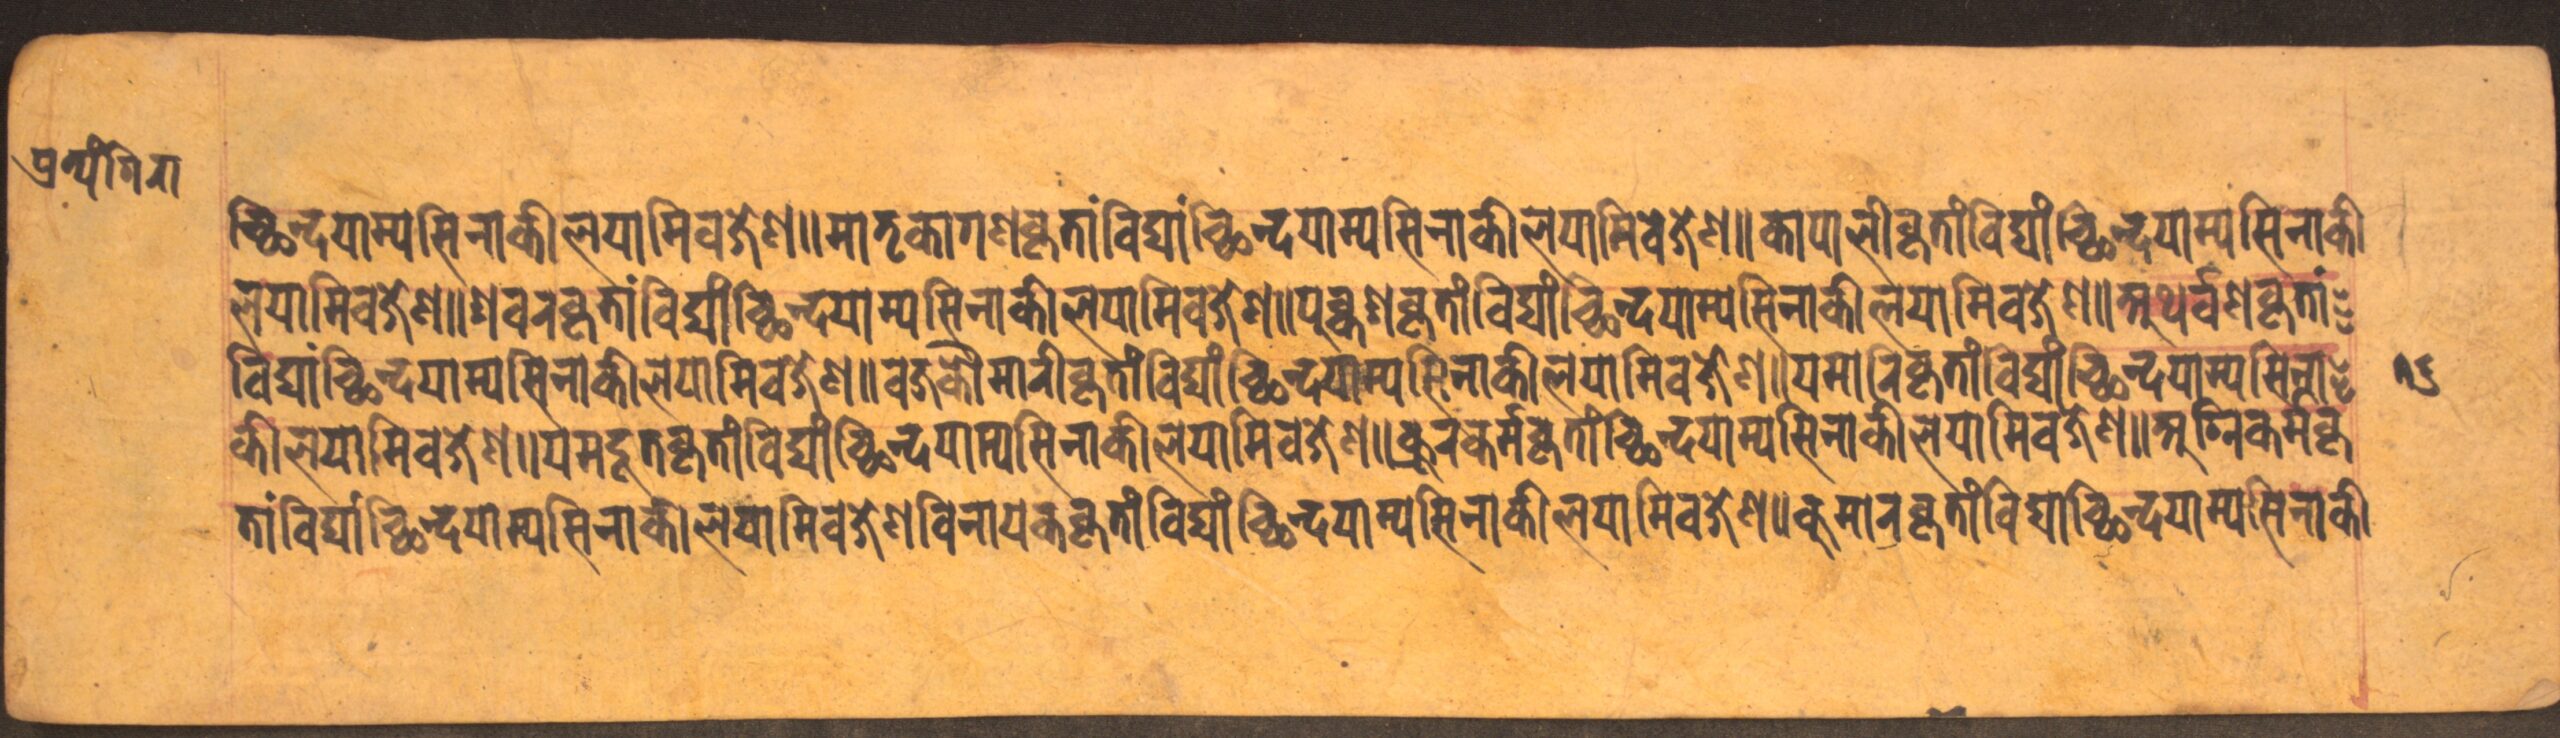 प्रत्यंगिरा
च्छिन्दयाम्यसिनाकीलयामिवज्रेण॥मातृकागणकृतांविद्यांच्छिन्दयाम्यसिनाकीलयामिवज्रेण॥कापालीकृतांविद्यांच्छिन्दयाम्यसिनाकी
लयामिवज्रेण॥शवरकृतांविद्यांच्छिन्दयाम्यसिनाकीलयामिवज्रेण॥पुक्कशकृतांविद्यांच्छिन्दयाम्यसिनाकीलयामिवज्रेण॥अथर्वशकृतां
विद्यांच्छिन्दयाम्यसिनाकीलयामिवज्रेण॥वज्रकौमारीकृतांविद्यांच्छिन्दयाम्यसिनाकीलयामिवज्रेण॥यमारिकृतांविद्यांच्छिन्दयाम्यसिना
१५
कीलयामिवज्रेण॥यमदूतकृतांविद्यांच्छिन्दयाम्यसिनाकीलयामिवज्रेण॥क्रूरकर्मकृतांच्छिन्दयाम्यसिनाकीलयामिवज्रेण॥अग्निकर्मकृ
तांविद्यांच्छिन्दयाम्यसिनाकीलयामिवज्रेणविनायककृतांविद्यांच्छिन्दयाम्यसिनाकीलयामिवज्रेण॥कुमारकृतांविद्याच्छिन्दयाम्यसिनाकी